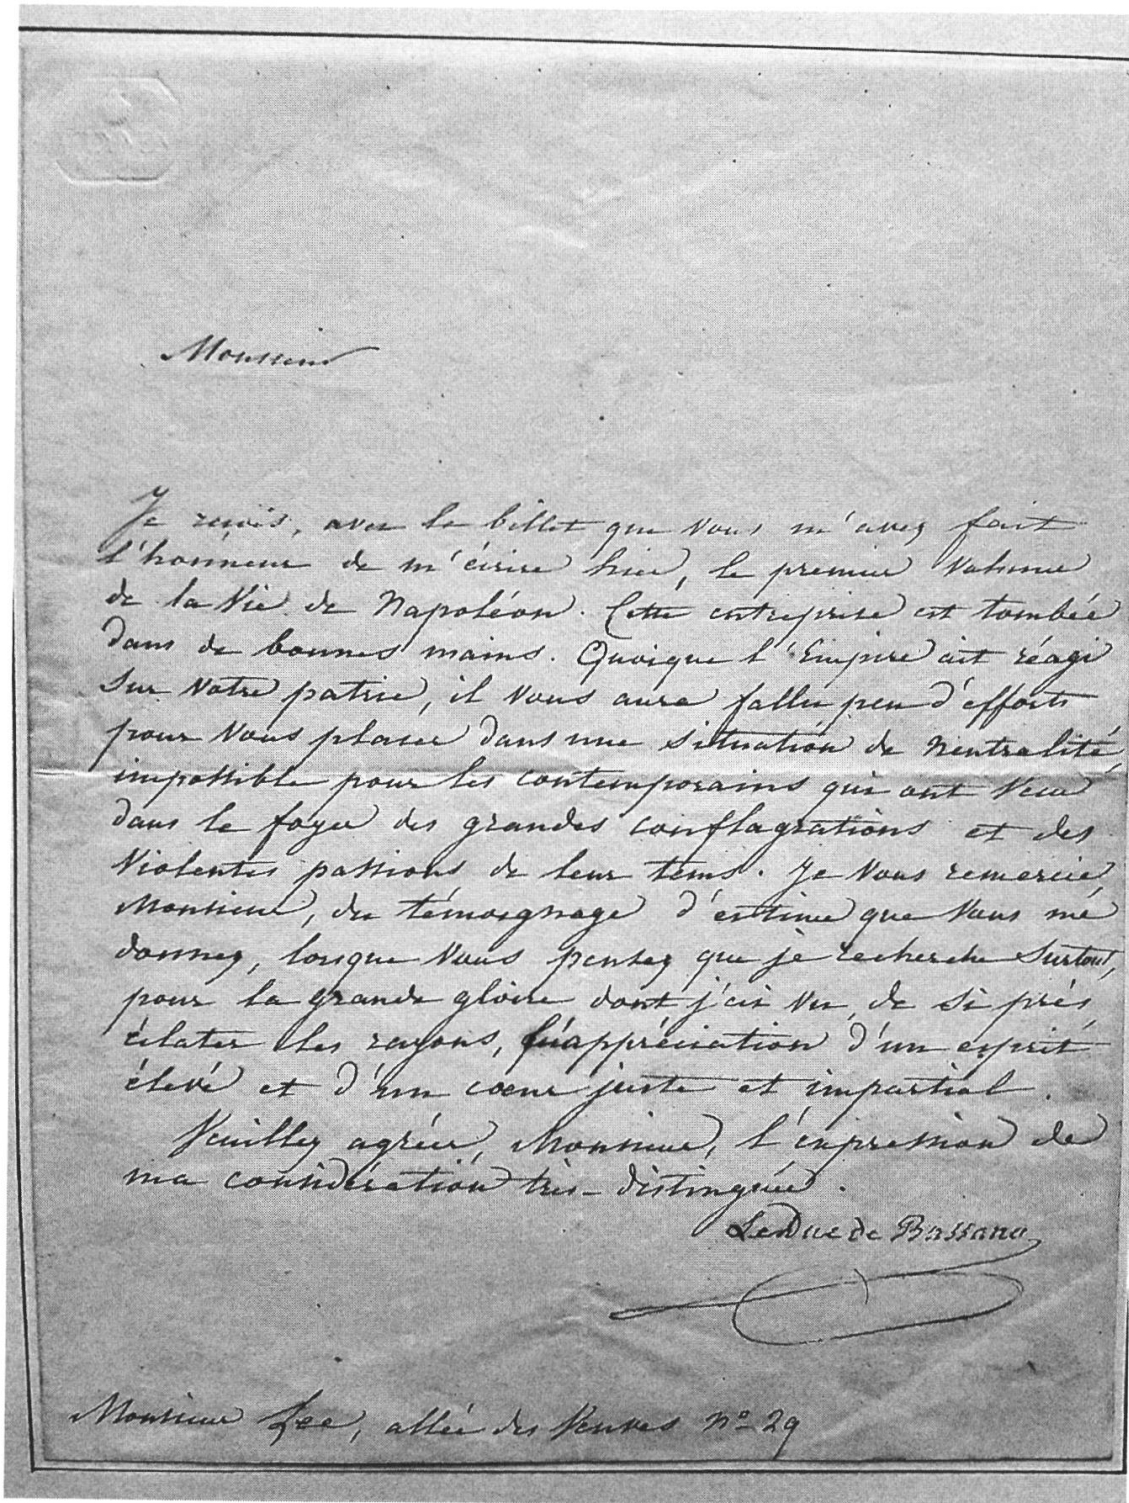 Monsieur
Je reçois, avec le billet que vous m'avez fait
l'honneur de m'écrire hier, le premier volume
de la Vie de Napoléon. Cette entreprise est tombée
dans de bonnes mains. Quoique l'Empire ait réagi
sur votre patrie, il vous aura fallu peu d'efforts
pour vous placer dans une situation de neutralité,
impossible pour les contemporains qui ont vécu
dans le foyer des grandes conflagrations et des
violentes passions de leur tems. Je vous remercie,
Monsieur, du témoignage d'estime que vous me
donnez, lorsque vous pensez que je recherche surtout,
pour la grande gloire dont j'ai vu, de si près,
éclater les rayons, l'appréciation d'un esprit
élevé et d'un cœur juste et impartial.
Veuillez agréer, Monsieur, l'expression de
ma considération très-distinguée.
Le Duc de Bassano
Monsieur Lee, allée des Veuves Nº 29